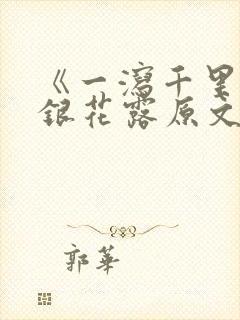 《一瀉千里
銀花露原文
郭華